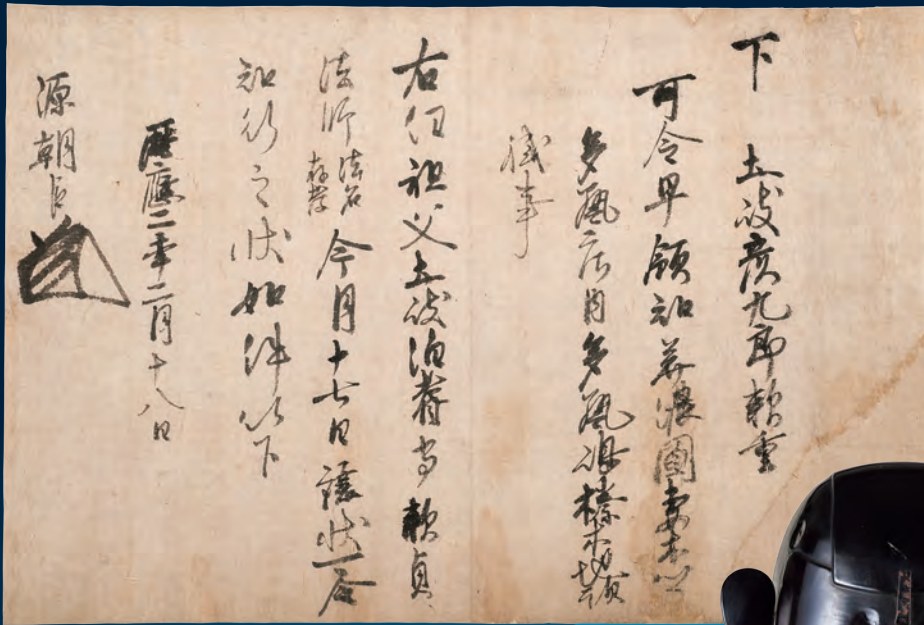 下 土岐彦九郎頼重
可令早領知美濃國妻木
多藝庄内多藝嶋榛木地頭
職事
右任祖父土岐伯耆守頼貞
法師 法名存孝 今月十七日譲状可
知行之状如件以下
暦應二年二月十八日
源朝臣